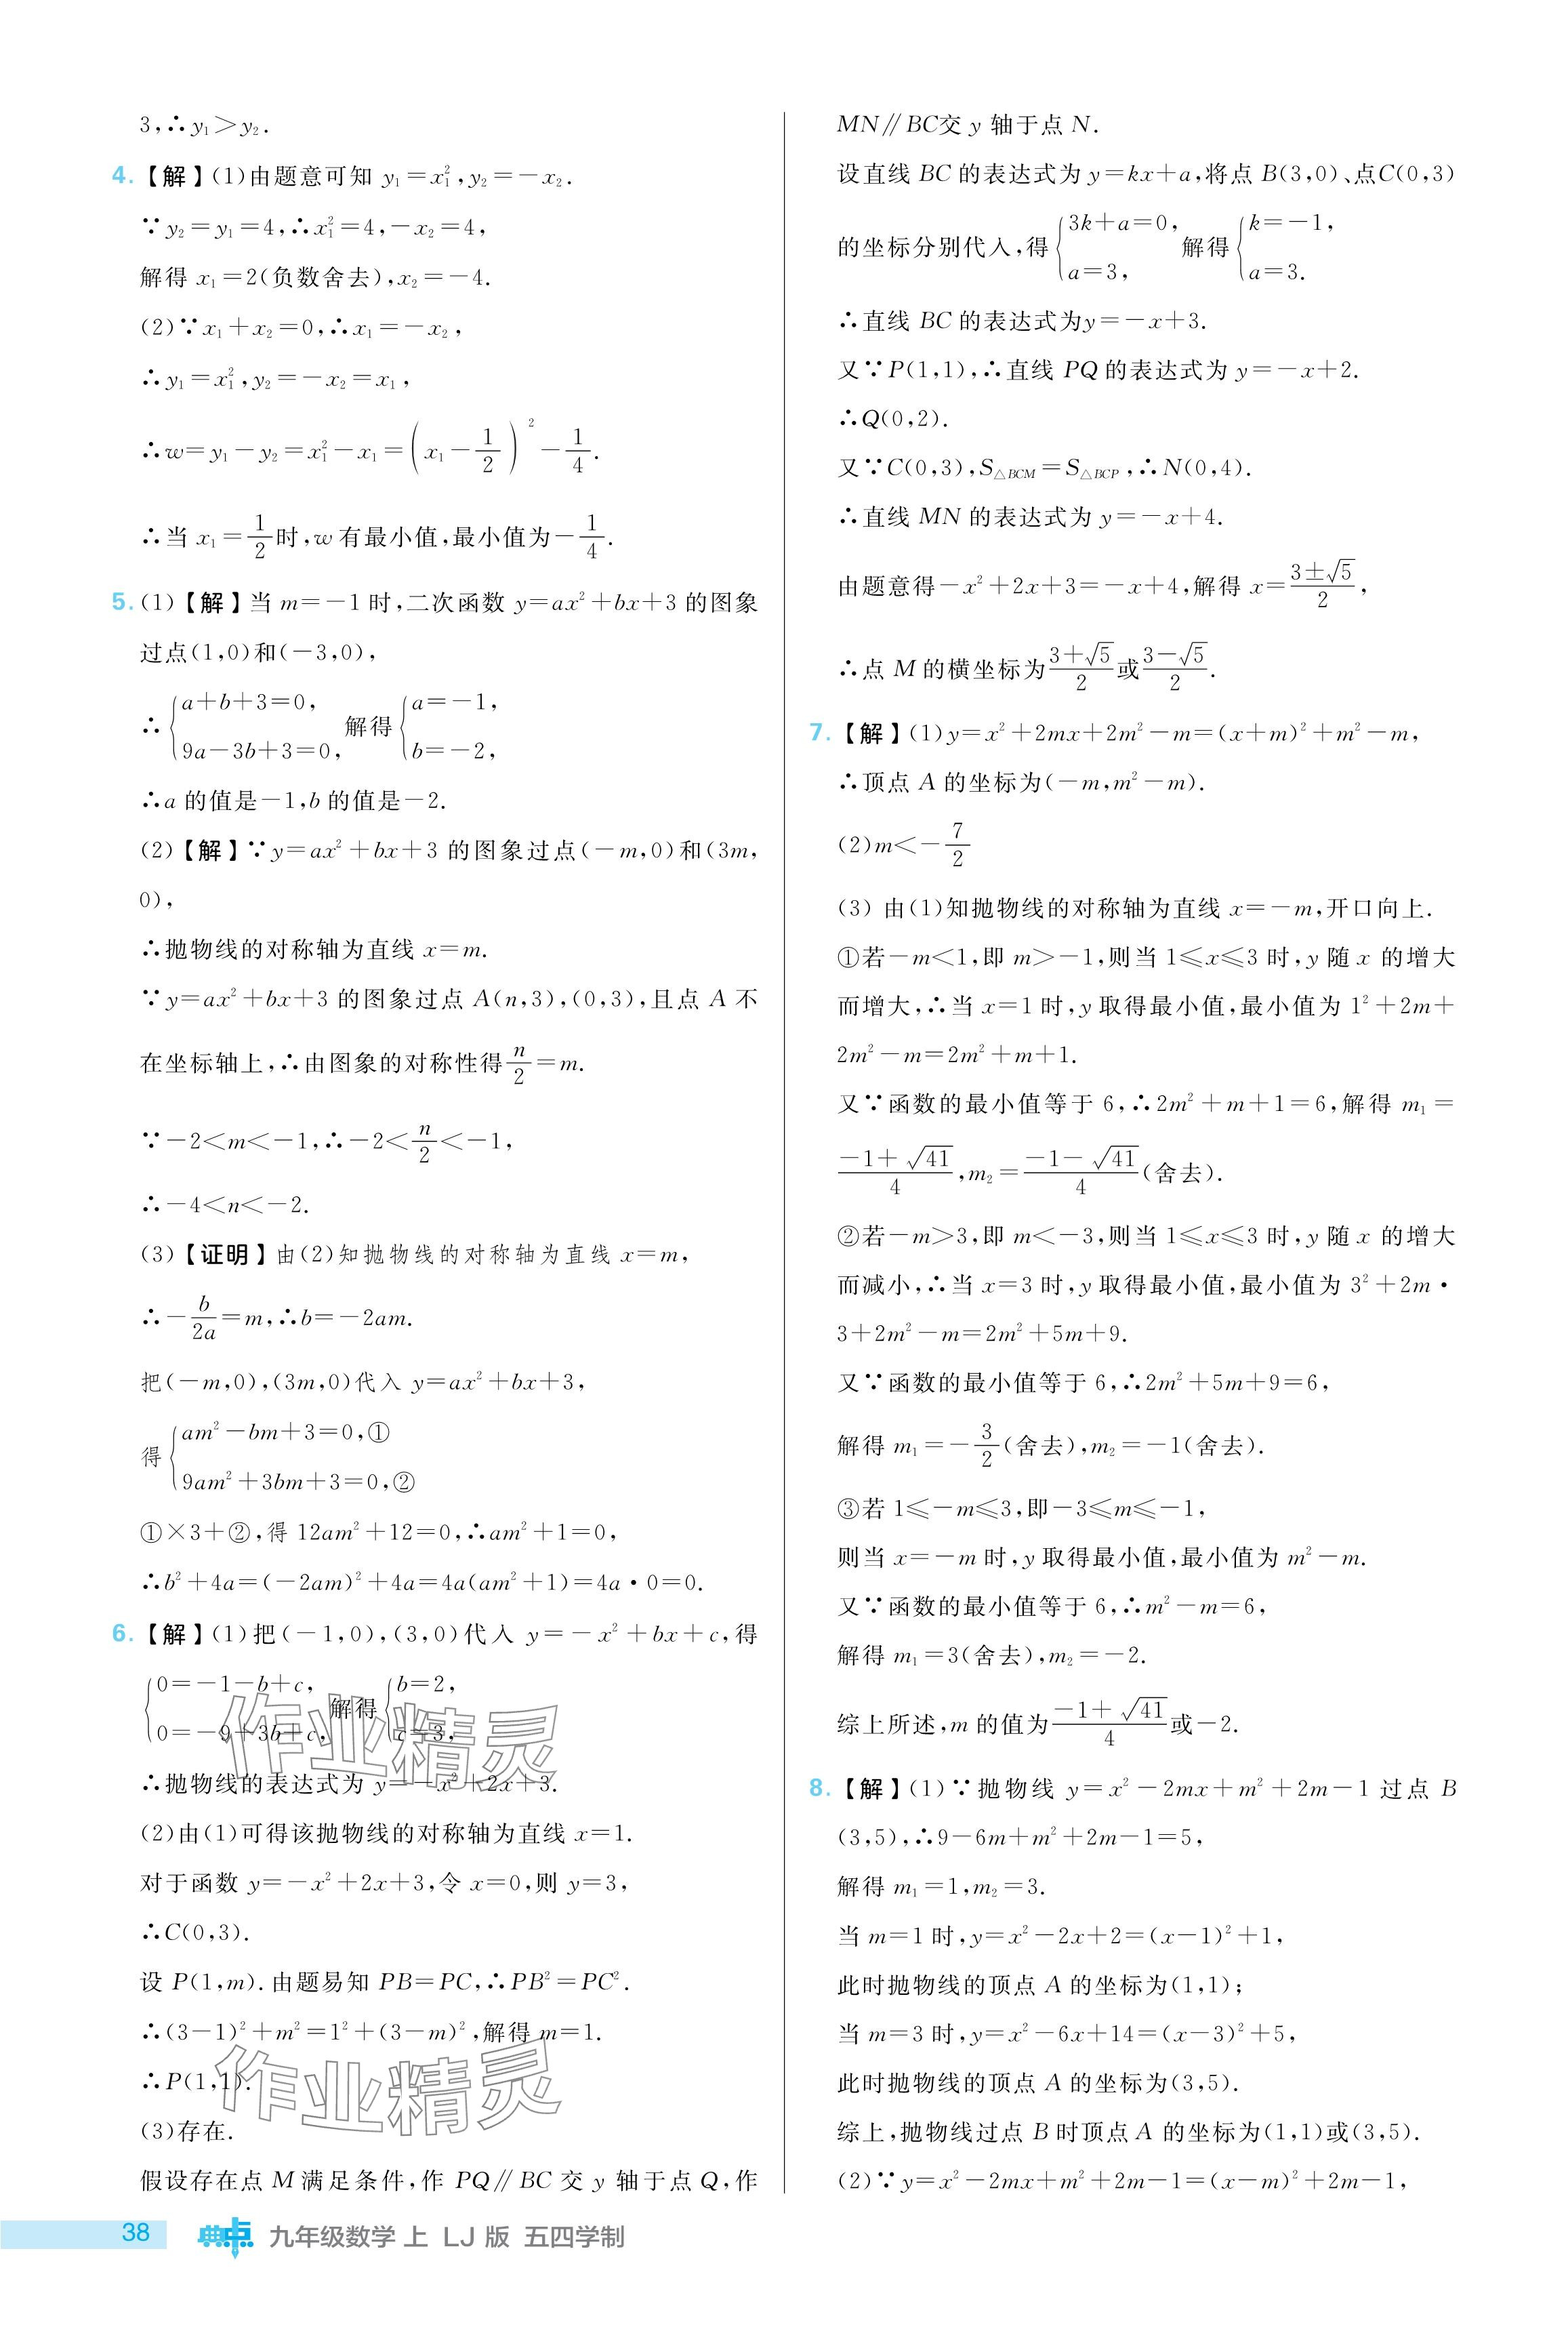 3,∴y₁>y₂.
4.【解】(1)由题意可知 y₁=x₁²,y₂=-x₂.
∵y₂=y₁=4,∴x₁²=4,-x₂=4,
解得 x₁=2(负数舍去),x₂=-4.
(2)∵x₁+x₂=0,∴x₁=-x₂,
∴y₁=x₁²,y₂=-x₂=x₁,
∴w=y₁-y₂=x₁²-x₁=(x₁-1/2)²-1/4.
∴当 x₁=1/2时,w 有最小值,最小值为-1/4.
5.(1)【解】当 m=-1 时,二次函数 y=ax²+bx+3 的图象
过点(1,0)和(-3,0),
∴{a+b+3=0, 9a-3b+3=0, 解得{a=-1, b=-2,
∴a 的值是-1,b 的值是-2.
(2)【解】∵y=ax²+bx+3 的图象过点(-m,0)和(3m,
0),
∴抛物线的对称轴为直线 x=m.
∵y=ax²+bx+3 的图象过点 A(n,3),(0,3),且点 A 不
在坐标轴上,∴由图象的对称性得n/2=m.
∵-2<m<-1,∴-2<n/2<-1,
∴-4<n<-2.
(3)【证明】由(2)知抛物线的对称轴为直线 x=m,
∴-b/2a=m,∴b=-2am.
把(-m,0),(3m,0)代入 y=ax²+bx+3,
得{am²-bm+3=0,① 9am²+3bm+3=0,②
①×3+②,得 12am²+12=0,∴am²+1=0,
∴b²+4a=(-2am)²+4a=4a(am²+1)=4a·0=0.
6.【解】(1)把(-1,0),(3,0)代入 y=-x²+bx+c,得
{0=-1-b+c, 0=-9+3b+c, 解得{b=2, c=3,
∴抛物线的表达式为 y=-x²+2x+3.
(2)由(1)可得该抛物线的对称轴为直线 x=1.
对于函数 y=-x²+2x+3,令 x=0,则 y=3,
∴C(0,3).
设 P(1,m).由题易知 PB=PC,∴PB²=PC².
∴(3-1)²+m²=1²+(3-m)²,解得 m=1.
∴P(1,1).
(3)存在.
假设存在点 M 满足条件,作 PQ∥BC 交 y 轴于点 Q,作
MN∥BC交 y 轴于点 N.
设直线 BC 的表达式为 y=kx+a,将点 B(3,0)、点C(0,3)
的坐标分别代入,得{3k+a=0, a=3, 解得{k=-1, a=3.
∴直线 BC 的表达式为y=-x+3.
又∵P(1,1),∴直线 PQ 的表达式为 y=-x+2.
∴Q(0,2).
又∵C(0,3),S△BCM=S△BCP,∴N(0,4).
∴直线 MN 的表达式为 y=-x+4.
由题意得-x²+2x+3=-x+4,解得 x=(3±√5)/2,
∴点 M 的横坐标为(3+√5)/2或(3-√5)/2.
7.【解】(1)y=x²+2mx+2m²-m=(x+m)²+m²-m,
∴顶点 A 的坐标为(-m,m²-m).
(2)m<-7/2
(3) 由(1)知抛物线的对称轴为直线 x=-m,开口向上.
①若-m<1,即 m>-1,则当 1≤x≤3 时,y 随 x 的增大
而增大,∴当 x=1 时,y 取得最小值,最小值为 1²+2m+
2m²-m=2m²+m+1.
又∵函数的最小值等于 6,∴2m²+m+1=6,解得 m₁=
(-1+√41)/4,m₂=(-1-√41)/4(舍去).
②若-m>3,即 m<-3,则当 1≤x≤3 时,y 随 x 的增大
而减小,∴当 x=3 时,y 取得最小值,最小值为 3²+2m·
3+2m²-m=2m²+5m+9.
又∵函数的最小值等于 6,∴2m²+5m+9=6,
解得 m₁=-3/2(舍去),m₂=-1(舍去).
③若 1≤-m≤3,即-3≤m≤-1,
则当 x=-m 时,y 取得最小值,最小值为 m²-m.
又∵函数的最小值等于 6,∴m²-m=6,
解得 m₁=3(舍去),m₂=-2.
综上所述,m 的值为(-1+√41)/4或-2.
8.【解】(1)∵抛物线 y=x²-2mx+m²+2m-1 过点 B
(3,5),∴9-6m+m²+2m-1=5,
解得 m₁=1,m₂=3.
当 m=1 时,y=x²-2x+2=(x-1)²+1,
此时抛物线的顶点 A 的坐标为(1,1);
当 m=3 时,y=x²-6x+14=(x-3)²+5,
此时抛物线的顶点 A 的坐标为(3,5).
综上,抛物线过点 B 时顶点 A 的坐标为(1,1)或(3,5).
(2)∵y=x²-2mx+m²+2m-1=(x-m)²+2m-1,
作业精灵
作业精灵
38 典中点 九年级数学 上 LJ 版 五四学制